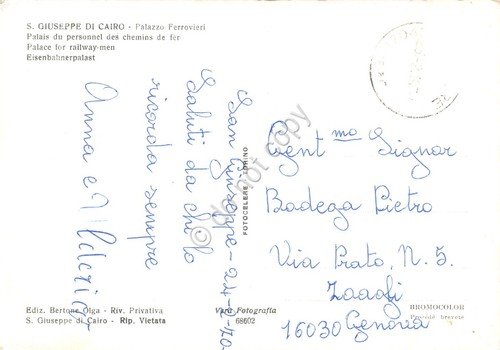 S. GIUSEPPE DI CAIRO - Palazzo Ferrovieri
Palais du personnel des chemins de fer
Palace for railway-men
Eisenbahnerpalast
San Giuseppe - 24-
Saluti da chi lo
ricorda sempre
Anna e Ulderico
FOTOCELERE - TORINO
Gent mo Signor
Bodega Pietro
Via Prato, N. 5.
16030 Genova
Ediz. Bertone Olga - Riv. Privativa
S. Giuseppe di Cairo - Rip. Vietata
Vera Fotografia
68602
BROMOCOLOR
Procédé breveté
do not copy